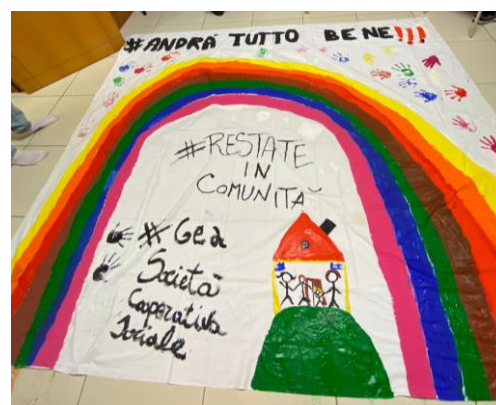 #ANDRÁ TUTTO BENE!!!
#RESTATE
IN
COMUNITĂ
#Gea
Società
Cooperativa
Sociale